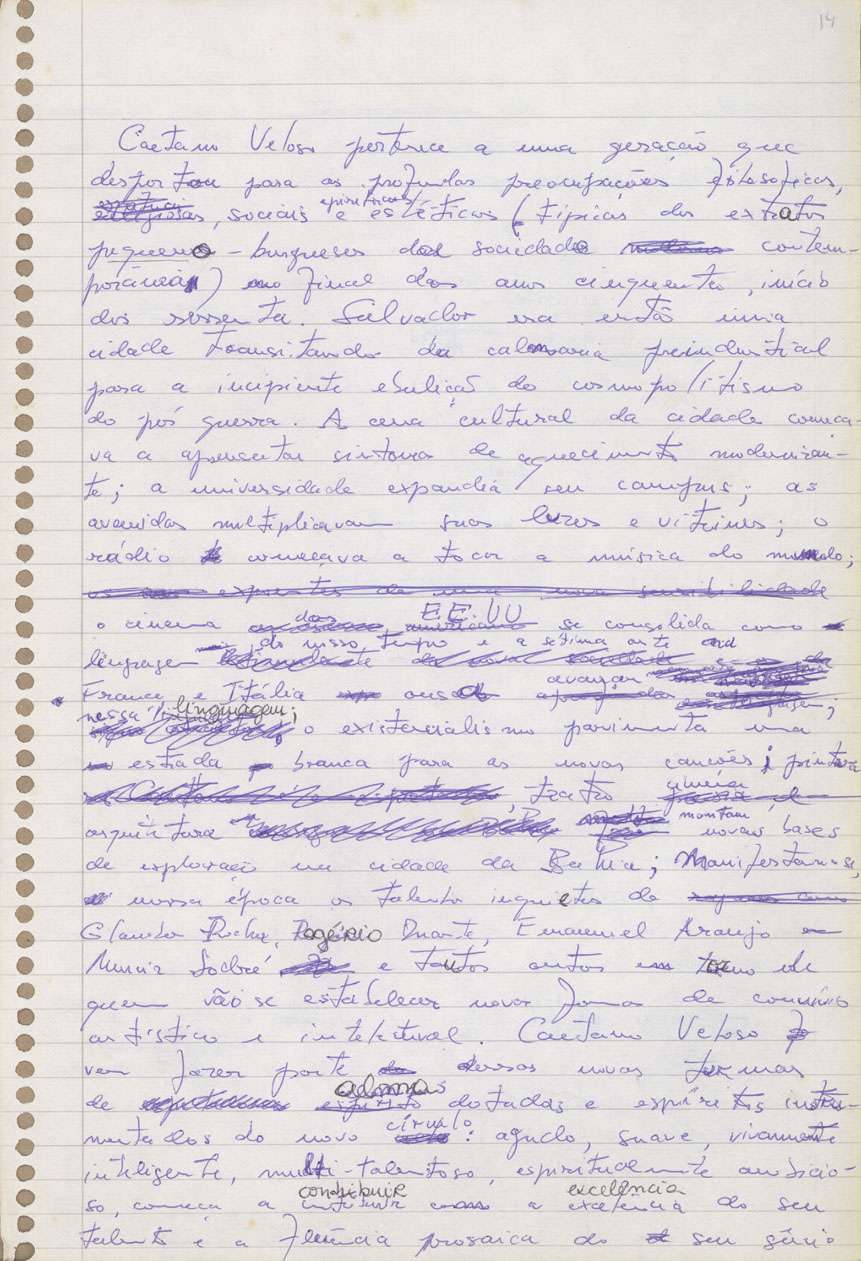 14
Caetano Veloso pertence a uma geração que
despertou para as profundas preocupações filosoficas,
religiosas, sociais espirituais e estéticas (típicas dos extratos
pequeno-burgueses da sociedade contem-
porânea) no final dos anos cinquenta, início
dos sessenta. Salvador era então uma
cidade transitando da calmaria preindustrial
para a incipiente ebulição do cosmopolitismo
do pós guerra. A cena cultural da cidade começa-
va a apresentar sintoma de aquecimento modernizan-
te; a universidade expandia seu campus; as
avenidas multiplicavam suas luzes e vitrines; o
rádio começava a tocar a música do mundo;
os expoentes de uma nova sensibilidade
o cinema dos EE.UU americano se consolida como
linguagem do nosso tempo e a setima arte na
França e Itália ousa avançar
nessa linguagem; o existencialismo pavimenta uma
estrada branca para as novas canções; pintura
, teatro
arquitetura montam novas bases
de exploração na cidade da Bahia; Manifestam-se,
nossa época os talentos inquietos de
Glauber Rocha, Rogério Duarte, Emanuel Araujo
Muniz Sodré e tantos outros em torno de
quem vão se estabelecer novas formas de convívio
artístico e intelectual. Caetano Veloso
vem fazer parte dessas novas turmas
de almas dotadas e espíritos
mentados do novo círculo: agudo, suave, vivamente
inteligente, multi-talentoso, espiritualmente ambicio-
so, começa a contribuir com a excelência do seu
talento e a fluência prosaica do seu gênio